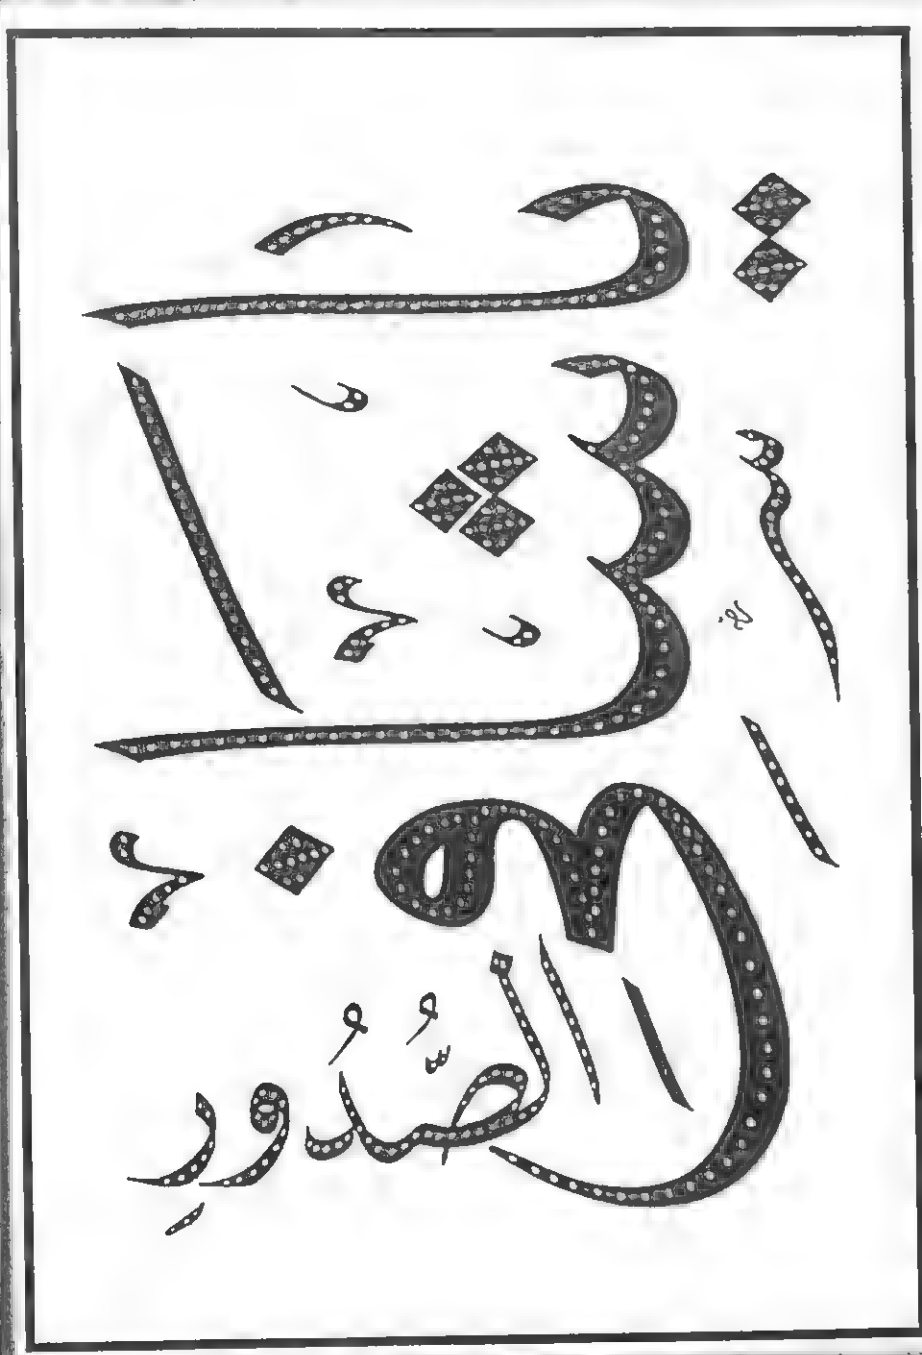 يَا شَافِي
الصُّدُورِ